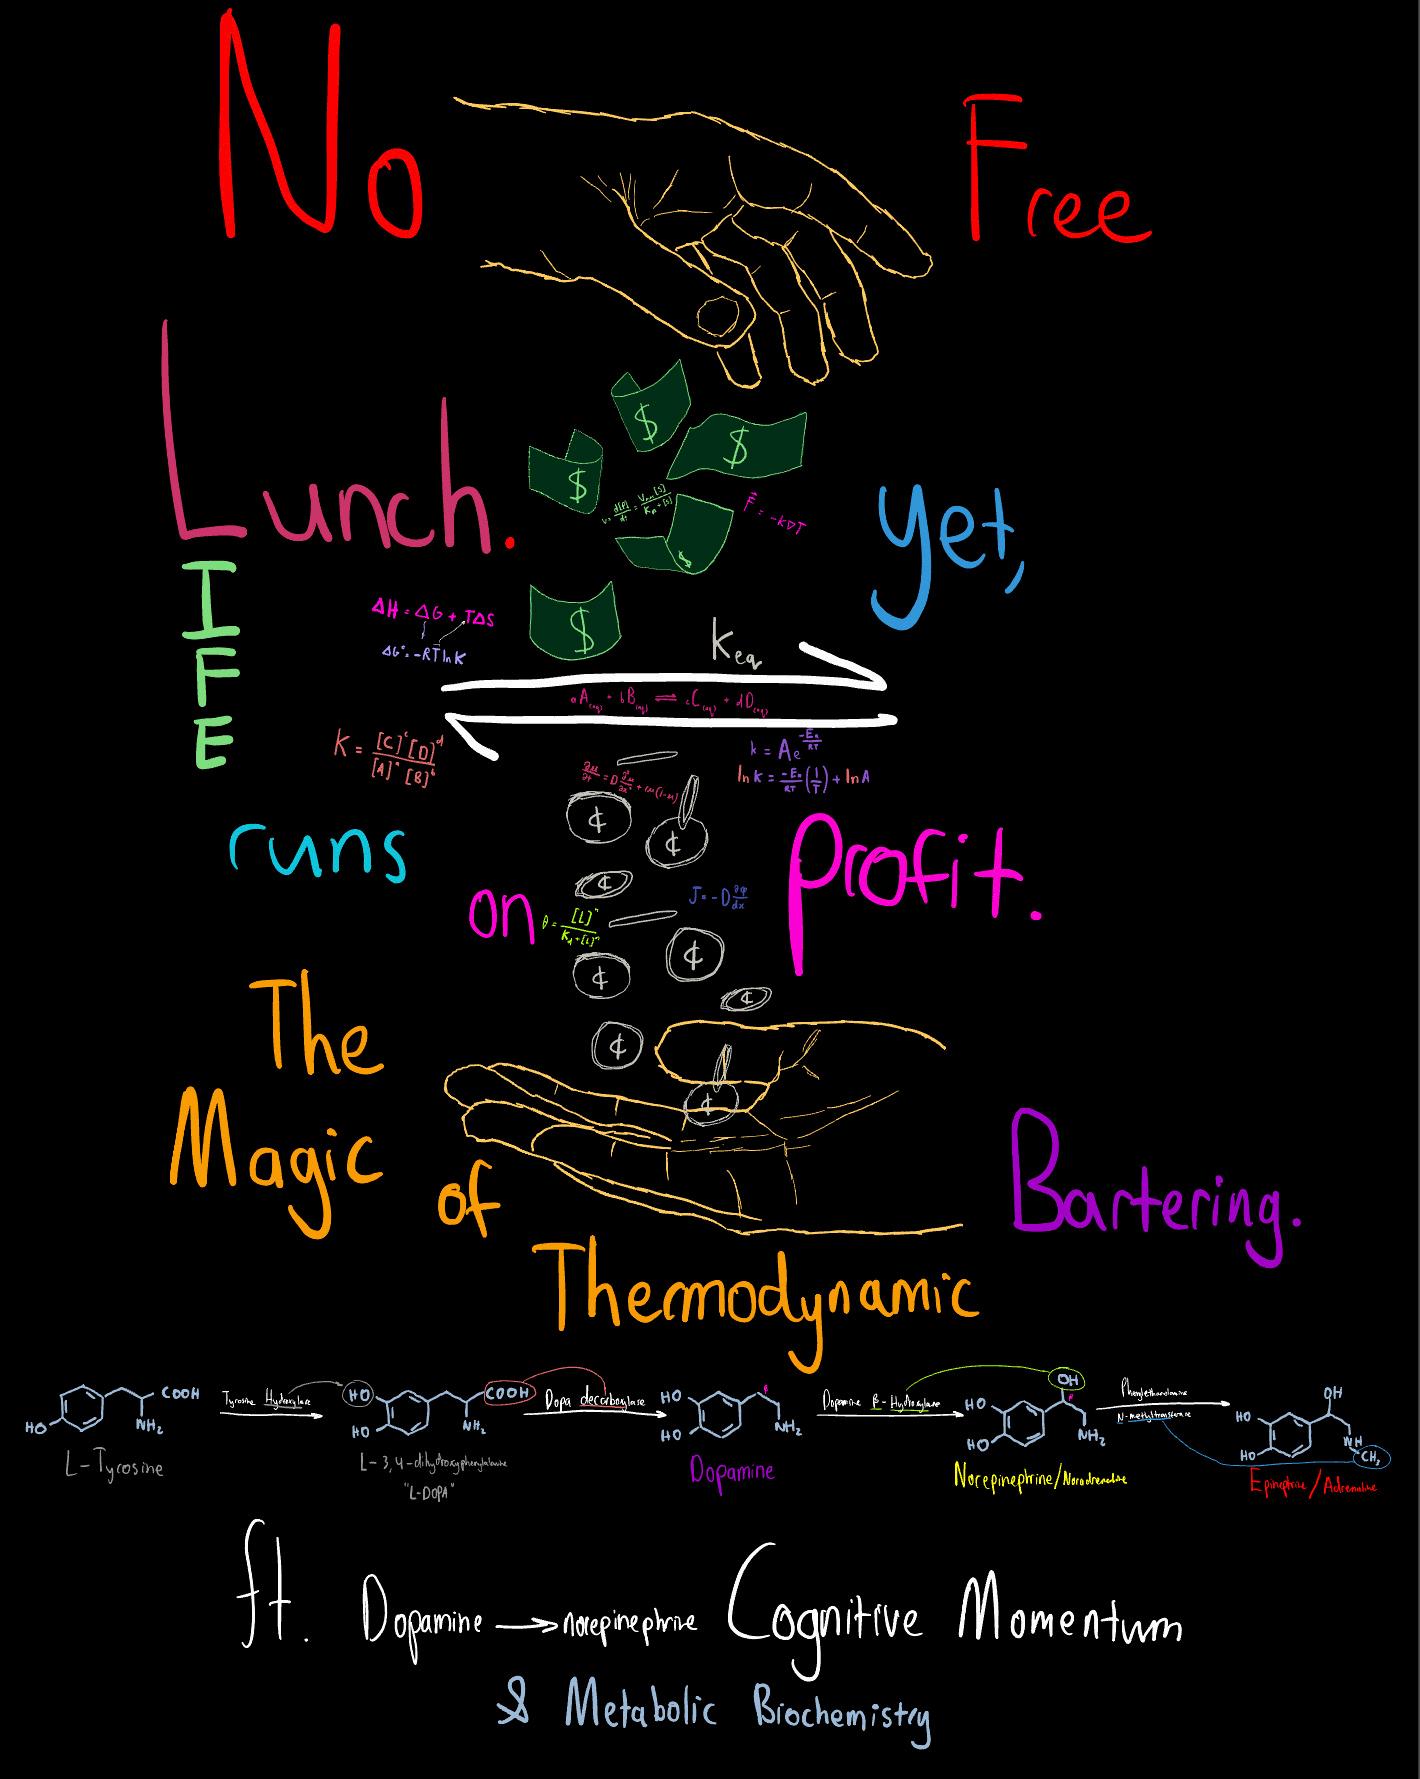 No Free
Lunch. yet,
LIFE
$
$
$
$
$
v = d[P]/dt = Vmax[S]/Km+[S]
F = -k∇T
ΔH = ΔG + TΔS
ΔG° = -RT ln K
Keq
aA(aq) + bB(aq) ⇌ cC(aq) + dD(aq)
K = [C]^c [D]^d / [A]^a [B]^b
k = Ae^(-Ea/RT)
ln k = -Ea/R (1/T) + ln A
∂u/∂t = D ∂²u/∂x² + ru(1-u)
¢
¢
runs on profit.
¢
J = -D ∂φ/dx
θ = [L]^n / Kd+[L]^n
¢
¢
¢
¢
¢
The
Magic of
Thermodynamic
Bartering.
COOH
HO
NH₂
L-Tyrosine
Tyrosine Hydroxylase
HO
COOH
HO
NH₂
L-3,4-dihydroxyphenylalanine
"L-DOPA"
Dopa decarboxylase
HO
HO
NH₂
Dopamine
Dopamine β-Hydroxylase
OH
HO
HO
NH₂
Norepinephrine/Noradrenaline
Phenylethanolamine
N-methyltransferase
OH
HO
HO
NH
CH₃
Epinephrine/Adrenaline
ft. Dopamine → norepinephrine Cognitive Momentum
& Metabolic Biochemistry